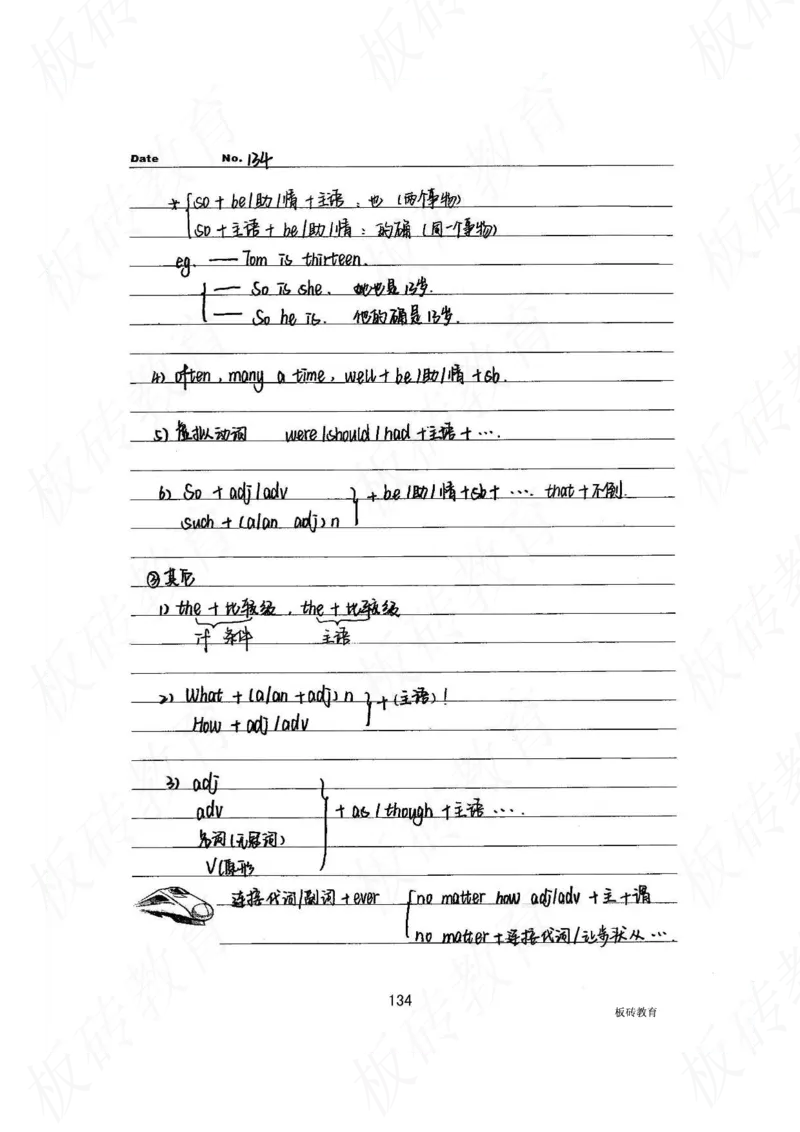 Date No. 134
* { so + be/助/情 + 主语 : 也 (两个事物)
so + 主语 + be/助/情 : 的确 (同一个事物)
eg. — Tom is thirteen.
{ — So is she. 她也是13岁.
— So he is. 他的确是13岁.
4) often, many a time, well + be/助/情 + sb.
5) 虚拟动词 were/should/had + 主语 + ….
6) So + adj/adv } + be/助/情 + sb + …. that + 不倒.
such + (a/an adj) n
② 其它
1) the + 比较级, the + 比较级
if 条件 主语
2) What + (a/an + adj) n } + (主语)!
How + adj/adv
3) adj
adv } + as/though + 主语 ….
名词 (无冠词)
V(原形
连接代词/副词 + ever { no matter how adj/adv + 主 + 谓
no matter + 连接代词/让步状从 ….
134
板砖教育